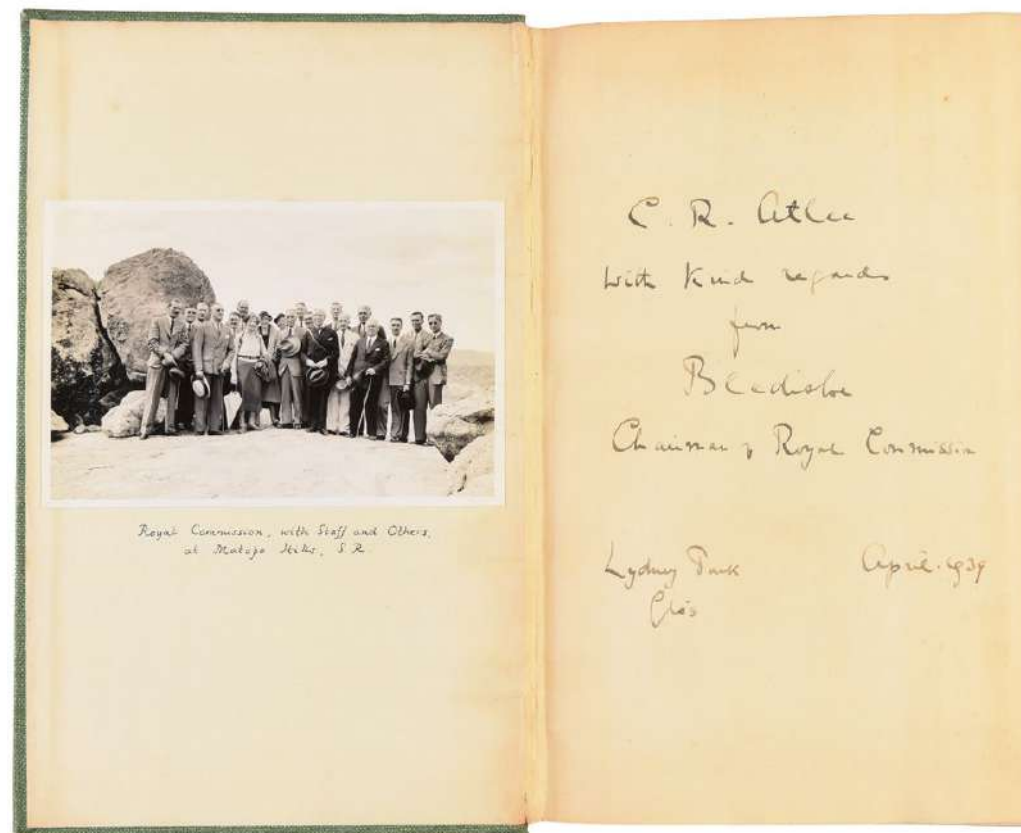 Royal Commission, with Staff and Others,
at Matopo Hills, S.R.
C. R. Atlee
with kind regards
from
Bledisloe
Chairman of Royal Commission
Lydney Park April. 1939
Glos